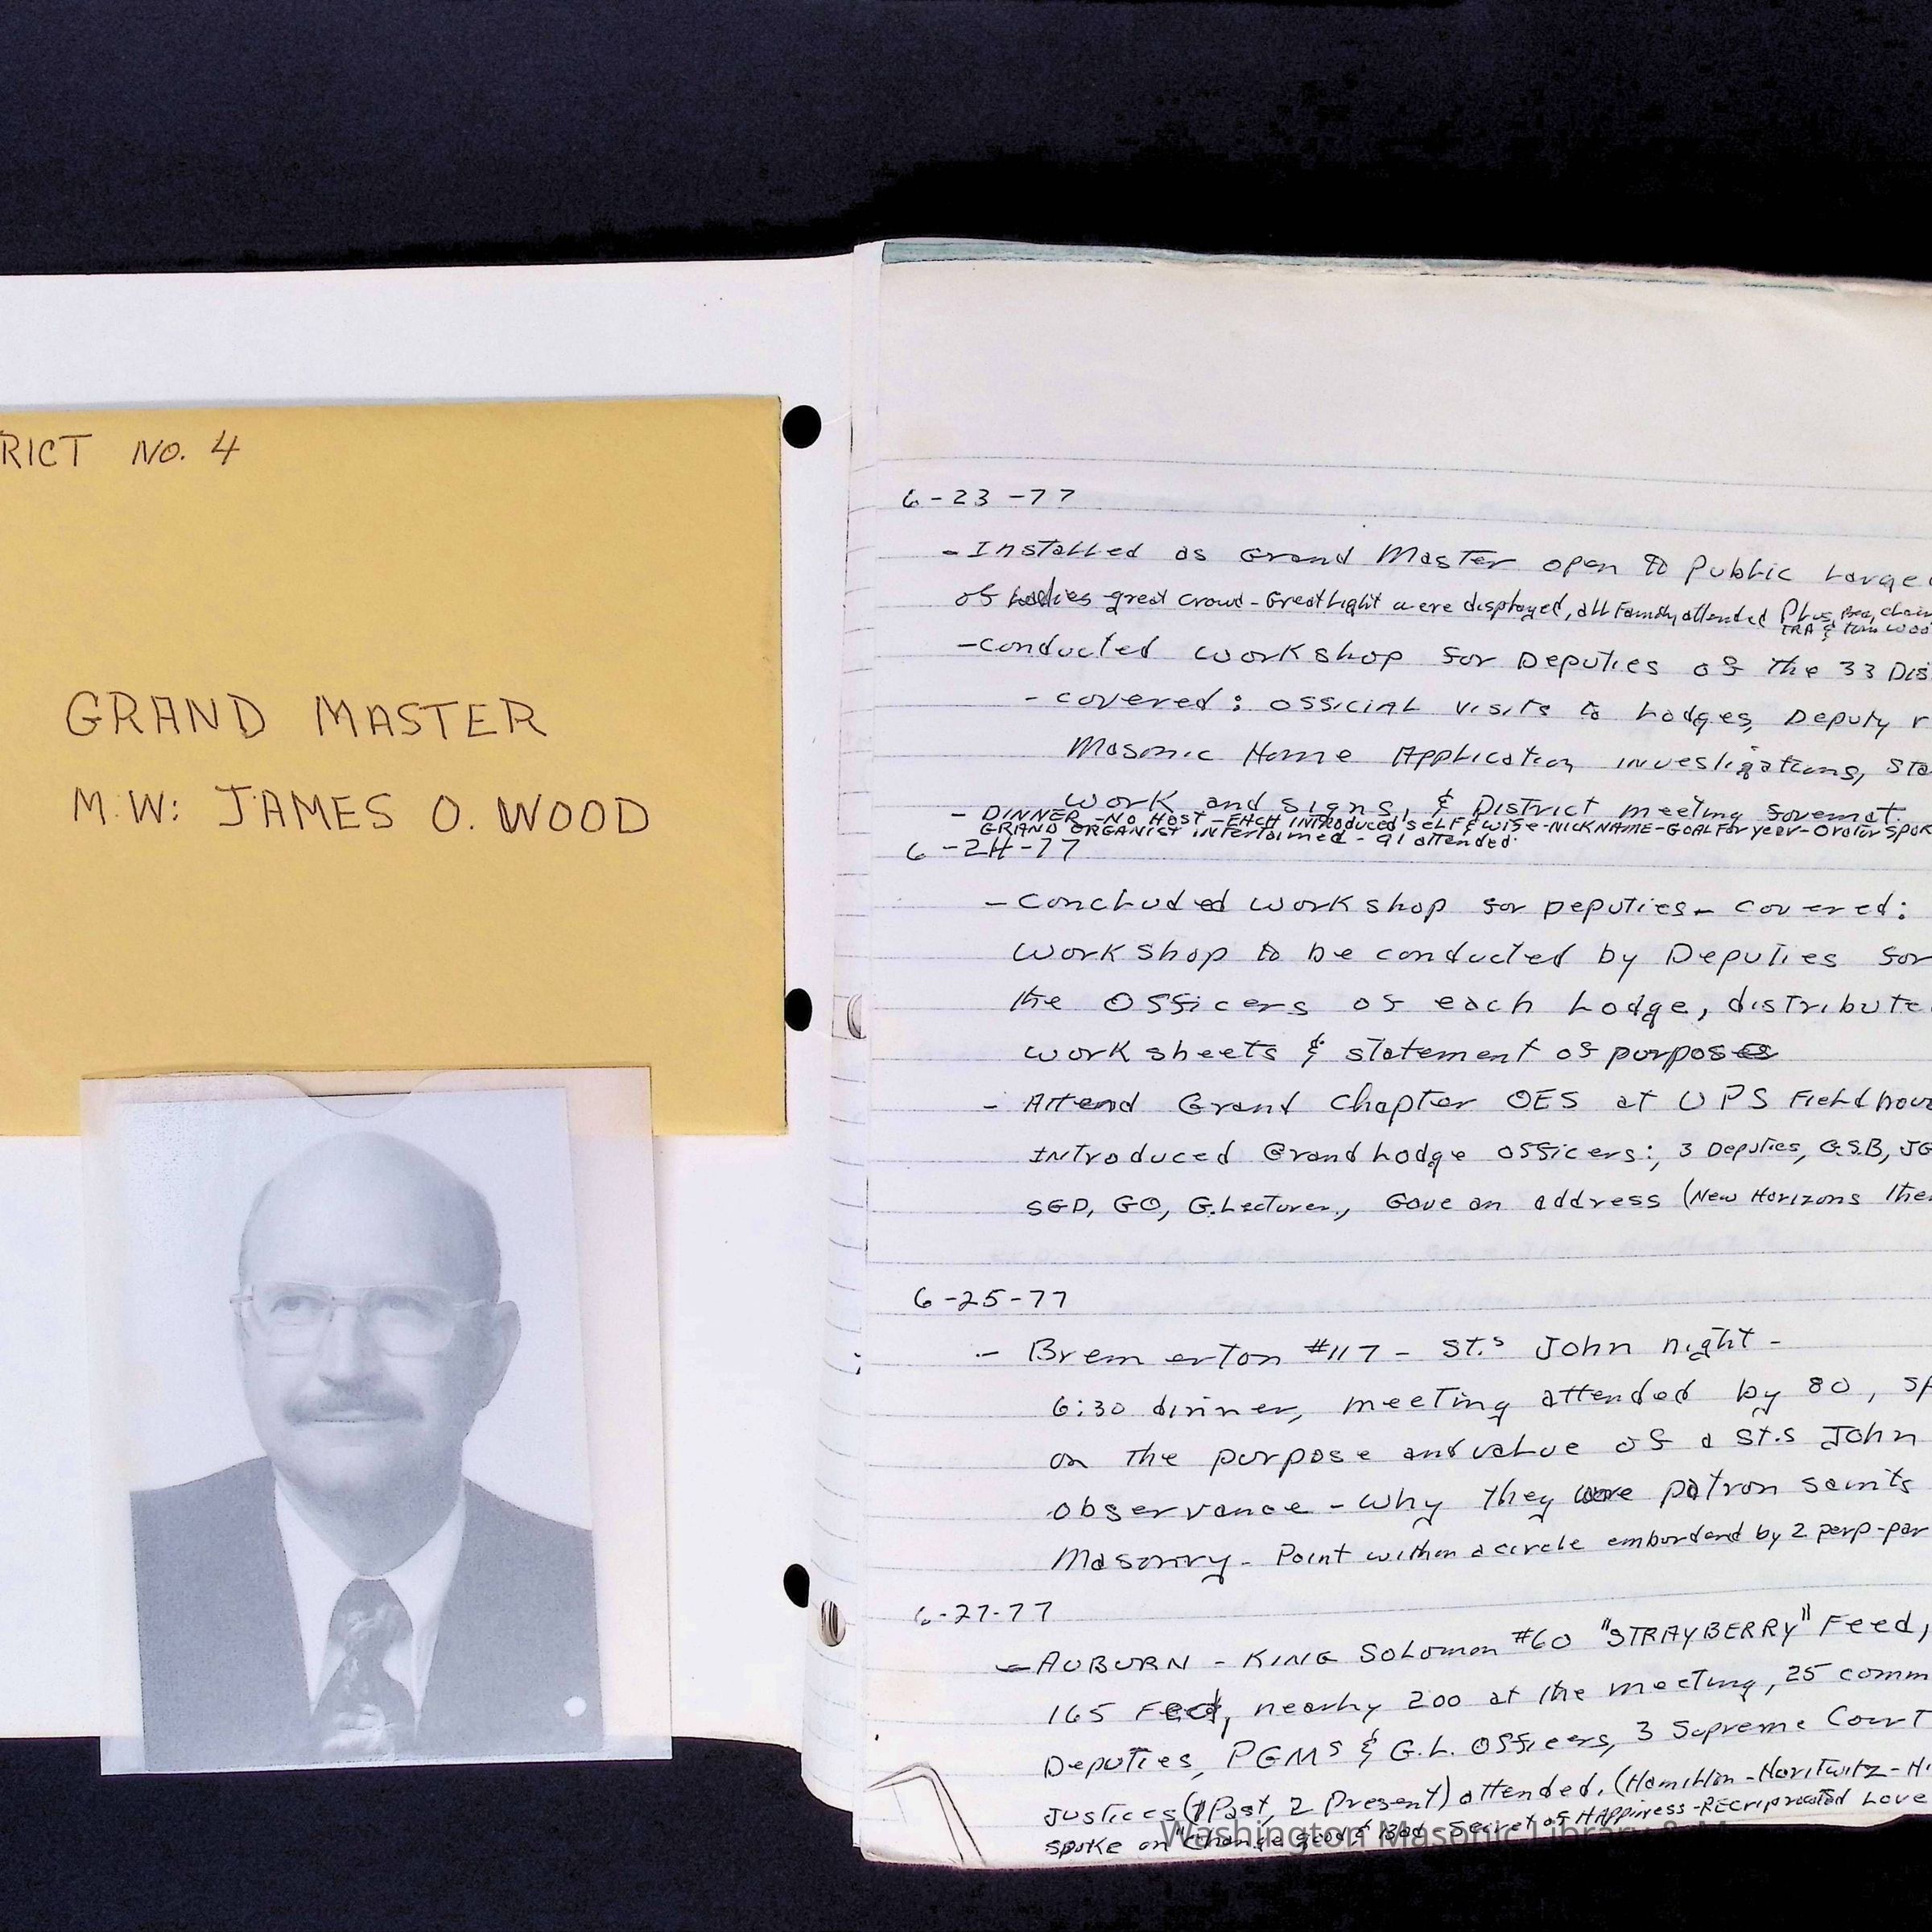 RICT NO. 4
GRAND MASTER
M.W: JAMES O. WOOD
6-23-77
- Installed as Grand Master open to Public Large
of ladies great crowd - Great Light were displayed, all Family attended Plus, Bea,
IRA & Tom Woo
- conducted workshop for Deputies of the 33 Dis
- covered: official visits to Lodges, Deputy r
Masonic Home Application investigations, Sta
work and signs, & District meeting
- DINNER - No Host - EACH INTRODUCED SELF & WIFE - NICKNAME - GOAL For year - Orator SPOK
GRAND ORGANIST INTERTAINED - 91 attended.
6-24-77
- Concluded workshop for Deputies - covered:
workshop to be conducted by Deputies for
the Officers of each Lodge, distribute
work sheets & statement of purposes
- Attend Grand Chapter OES at UPS Fieldhou
INTroduced Grand Lodge officers:, 3 Deputies, G.S.B, JG
SGD, GO, G.Lecturer., Gave an address (New Horizons The
6-25-77
- Bremerton #117 - St.s John night -
6:30 dinner, meeting attended by 80, sp
on the purpose and value of a St.s John
observance - why they were patron saints
Masonry - Point within a circle embordered by 2 perp-par
6-27-77
- AUBURN - KING SOLOMON #60 "STRAYBERRY" Feed,
165 Feed, nearly 200 at the meeting, 25 comm
Deputies, PGMs & G.L. Officers, 3 Supreme Court
Justices (1 Past, 2 Present) attended. (Hamilton - Horitwitz - Hi
spoke on "Change good & Bad - Secret of HAPPiness - RECriprocated Love
Washington Masonic Library & M